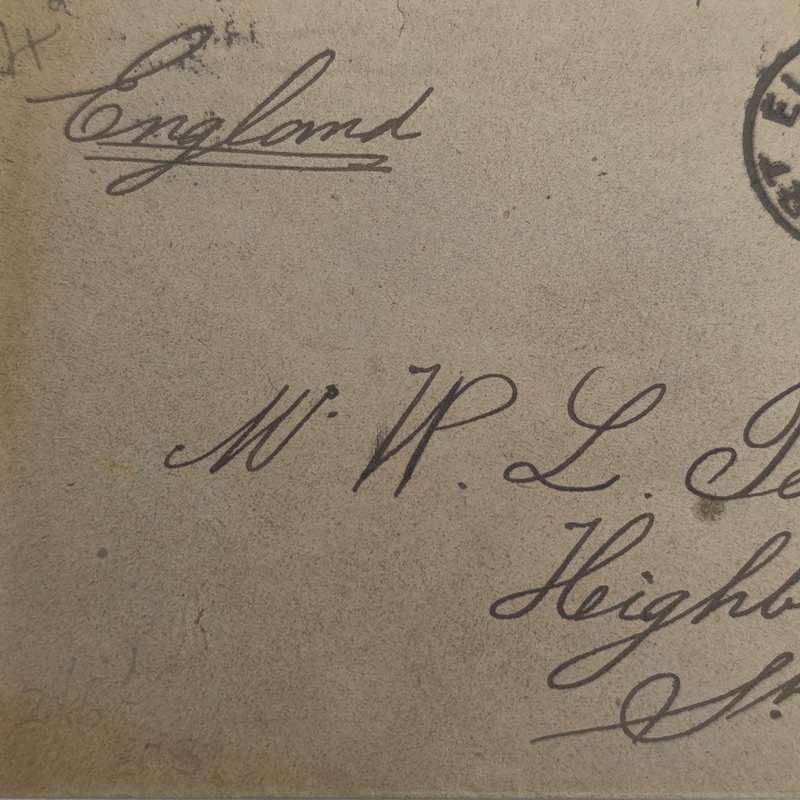 England
Mr. W. L.
Heighb
St.